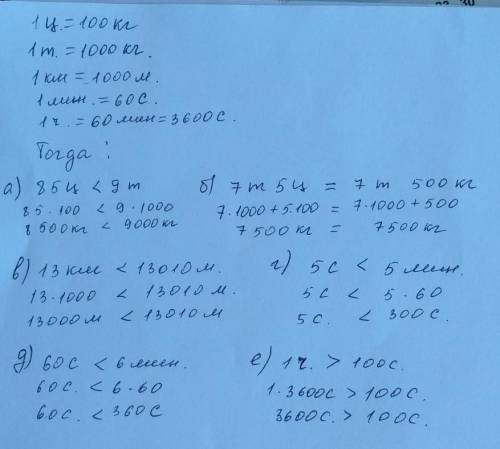 1 ц. = 100 кг
1 т. = 1000 кг.
1 км = 1000 м.
1 мин. = 60 с.
1 ч. = 60 мин = 3600 с.
Тогда:
а) 85 ц < 9 т
85 · 100 < 9 · 1000
8500 кг < 9000 кг
б) 7 т 5 ц = 7 т 500 кг
7·1000 + 5·100 = 7·1000 + 500
7500 кг = 7500 кг
в) 13 км < 13010 м.
13·1000 < 13010 м.
13000 м < 13010 м
г) 5 с < 5 мин.
5 с < 5 · 60
5 с. < 300 с.
д) 60 с < 6 мин.
60 с. < 6 · 60
60 с. < 360 с
е) 1 ч. > 100 с.
1 · 3600 с > 100 с.
3600 с. > 100 с.